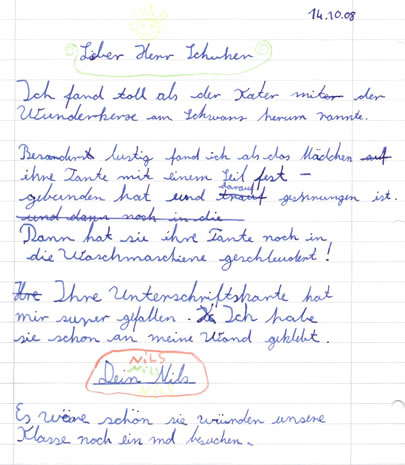 14.10.08
Lieber Herr Schuher
Ich fand toll als der Kater miter der
Wunderkerse am Schwans herum rannte.
Besonders lustig fand ich als das Mädchen auf
ihre Tante mit einem Seil fest -
gebunden hat und trauf darauf geshrungen ist.
und dann noch in die
Dann hat sie ihre Tante noch in
die Waschmaschiene geschleudert!
Ihre Ihre Unterschriftskarte hat
mir super gefallen. Ich habe
sie schon an meine Wand geklebt.
NILS
NILS
Dein Nils
Es wäre schön sie würden unsere
Klasse noch ein mal besuchen.